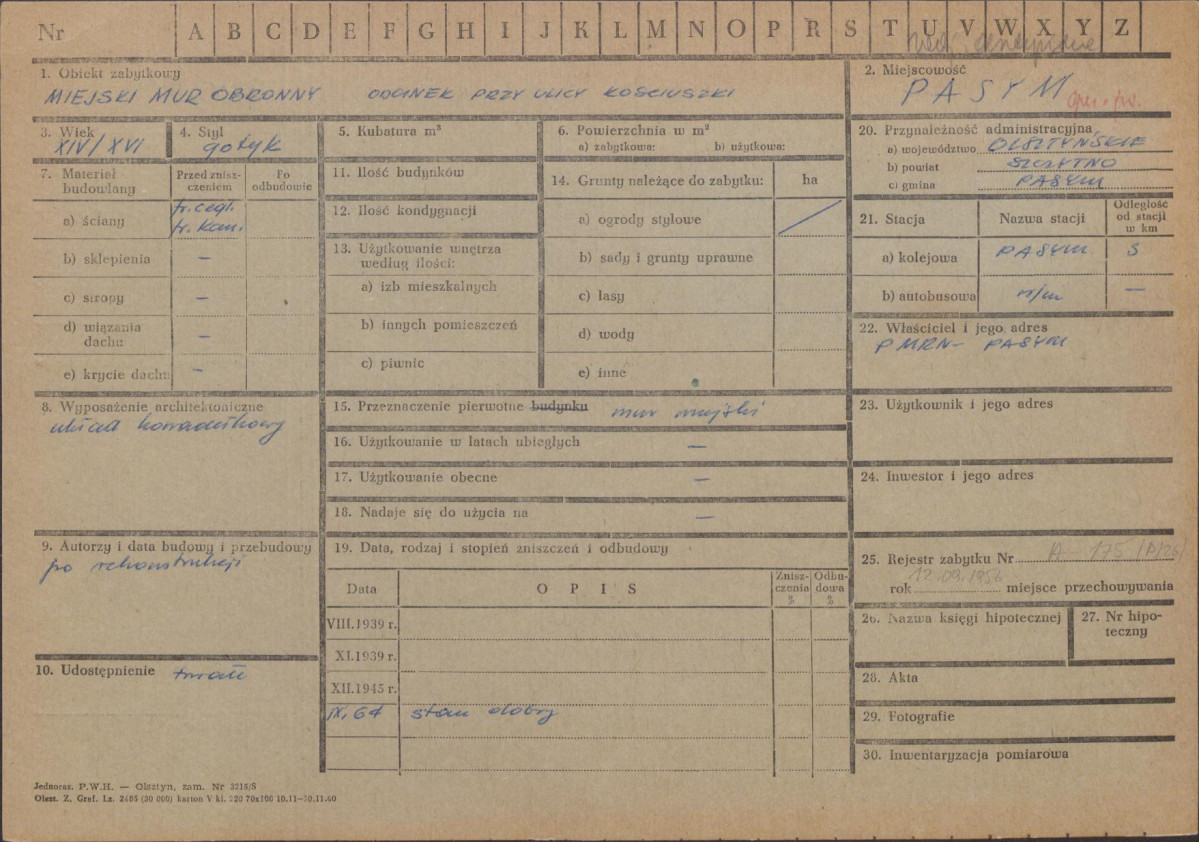 Nr A B C D E F G H I J K L Ł M N O P R S T U V W X Y Z
1. Obiekt zabytkowy
MIEJSKI MUR OBRONNY ODCINEK PRZY ULICY KOŚCIUSZKI
2. Miejscowość
PASYM
3. Wiek
XIV/XVI
4. Styl
gotyk
5. Kubatura m³
6. Powierzchnia w m²
a) zabytkowa: b) użytkowa:
20. Przynależność administracyjna
a) województwo OLSZTYŃSKIE
b) powiat SZCZYTNO
c) gmina PASYM
7. Materiał budowlany
Przed zniszczeniem
Po odbudowie
a) ściany
fr. cegl.
fr. kam.
b) sklepienia —
c) stropy —
d) wiązania dachu —
e) krycie dachu —
11. Ilość budynków
12. Ilość kondygnacji
13. Użytkowanie wnętrza według ilości:
a) izb mieszkalnych
b) innych pomieszczeń
c) piwnic
14. Grunty należące do zabytku: ha
a) ogrody stylowe
b) sady i grunty uprawne
c) lasy
d) wody
e) inne
21. Stacja
Nazwa stacji
Odległość od stacji w km
a) kolejowa PASYM 5
b) autobusowa n/m —
22. Właściciel i jego adres
PMRN - PASYM
8. Wyposażenie architektoniczne
układ
15. Przeznaczenie pierwotne budynku mur miejski
16. Użytkowanie w latach ubiegłych —
17. Użytkowanie obecne —
18. Nadaje się do użycia na —
23. Użytkownik i jego adres
24. Inwestor i jego adres
9. Autorzy i data budowy i przebudowy
po rekonstrukcji
19. Data, rodzaj i stopień zniszczeń i odbudowy
Data OPIS Zniszczenia % Odbudowa %
VIII.1939 r.
XI.1939 r.
XII.1945 r.
IX.64 stan dobry
10. Udostępnienie trwałe
25. Rejestr zabytku Nr A-175
rok 12.09.1956 miejsce przechowywania
26. Nazwa księgi hipotecznej
27. Nr hipoteczny
28. Akta
29. Fotografie
30. Inwentaryzacja pomiarowa
Jednoraz. P.W.H. — Olsztyn, zam. Nr 3215/S
Olszt. Z. Graf. Lz. 2405 (30 000) karton V kl. 220 70x100 10.11—30.11.60